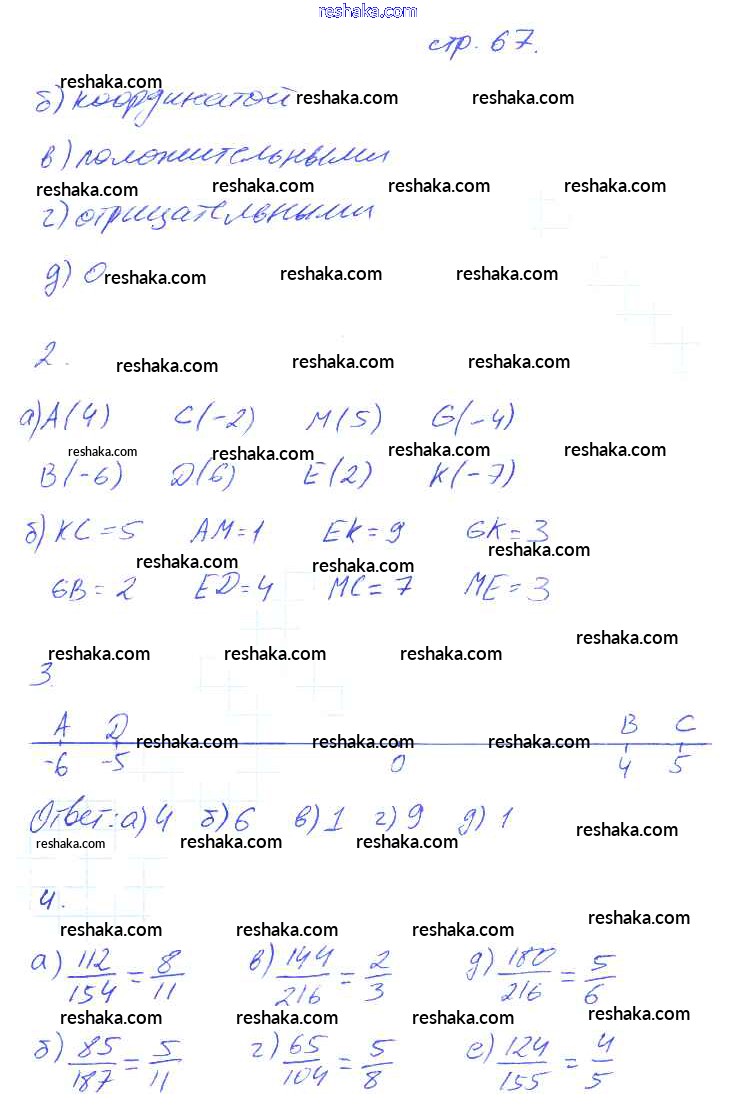 reshaka.com
стр. 67.
reshaka.com
б) координатой reshaka.com reshaka.com
в) положительными
reshaka.com reshaka.com reshaka.com reshaka.com
г) отрицательными
д) 0 reshaka.com reshaka.com reshaka.com
2. reshaka.com reshaka.com reshaka.com
а) A(4) C(-2) M(5) G(-4)
reshaka.com reshaka.com reshaka.com reshaka.com
B(-6) D(6) E(2) K(-7)
б) KC = 5 AM = 1 EK = 9 GK = 3
reshaka.com reshaka.com reshaka.com
GB = 2 ED = 4 MC = 7 ME = 3
reshaka.com reshaka.com reshaka.com reshaka.com
3.
A D B C
reshaka.com reshaka.com reshaka.com
-6 -5 0 4 5
Ответ: а) 4 б) 6 в) 1 г) 9 д) 1 reshaka.com
reshaka.com reshaka.com reshaka.com reshaka.com
4.
reshaka.com reshaka.com reshaka.com reshaka.com
а) 112/154 = 8/11 в) 144/216 = 2/3 д) 180/216 = 5/6
reshaka.com reshaka.com reshaka.com reshaka.com
б) 85/187 = 5/11 г) 65/104 = 5/8 е) 124/155 = 4/5